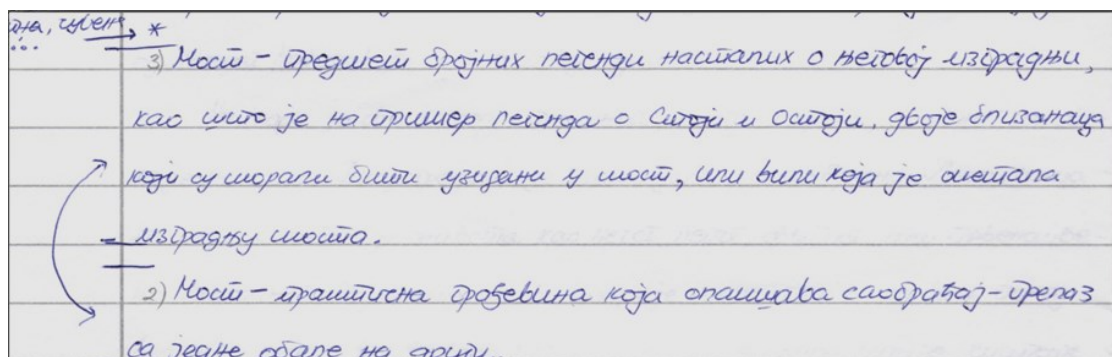 тна, чувен →*
...
3) Мост – предмет бројних легенди насталих о његовој изградњи,
као што је на пример легенда о Стоји и Остоји, двоје близанаца
који су морали бити узидани у мост, или вили која је ометала
изградњу моста.
2) Мост – практична грађевина која олакшава саобраћај – прелаз
са једне обале на другу.